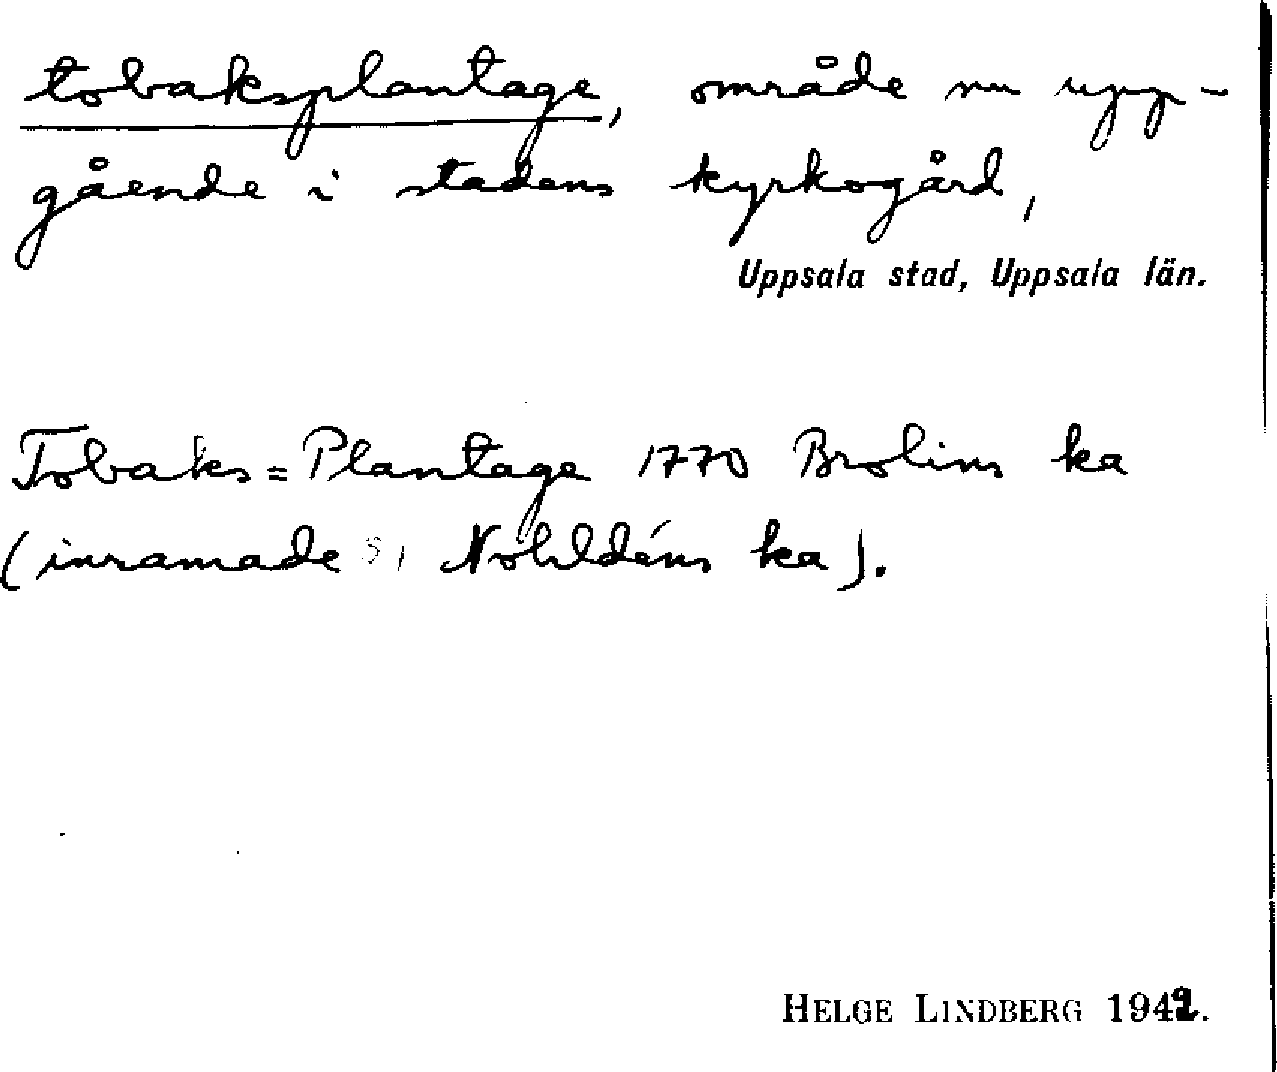 tobaksplantage, område nu upp-
gående i stadens kyrkogård,
Uppsala stad, Uppsala län.
Tobaks=Plantage 1770 Brolins ka
(inramade Nohldéns ka).
HELGE LINDBERG 1942.